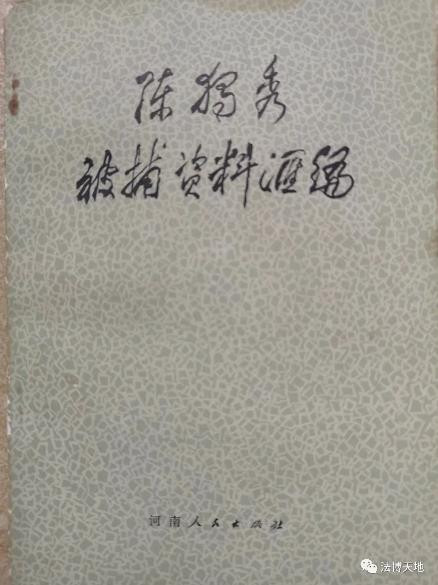 陈独秀
被捕资料汇编
河南人民出版社
法博天地